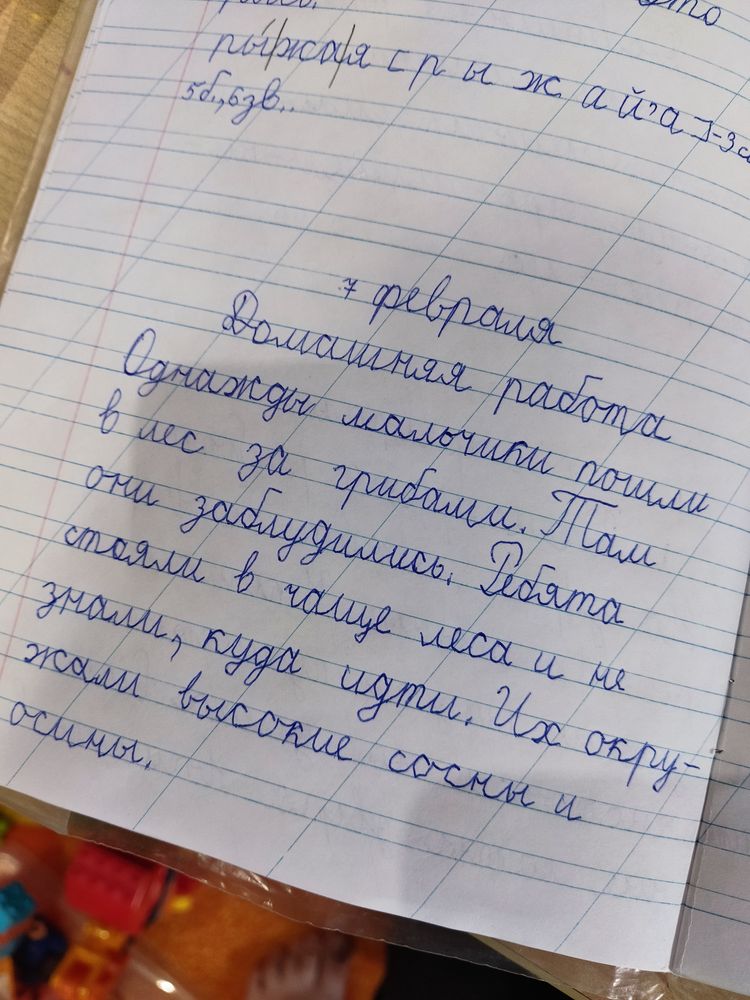 рыжая с р ы ж а й' а
5б., 6зв..
7 февраля
Домашняя работа
Однажды мальчики пошли
в лес за грибами. Там
они заблудились. Ребята
стояли в чаще леса и не
знали, куда идти. Их окру-
жали высокие сосны и
осины.